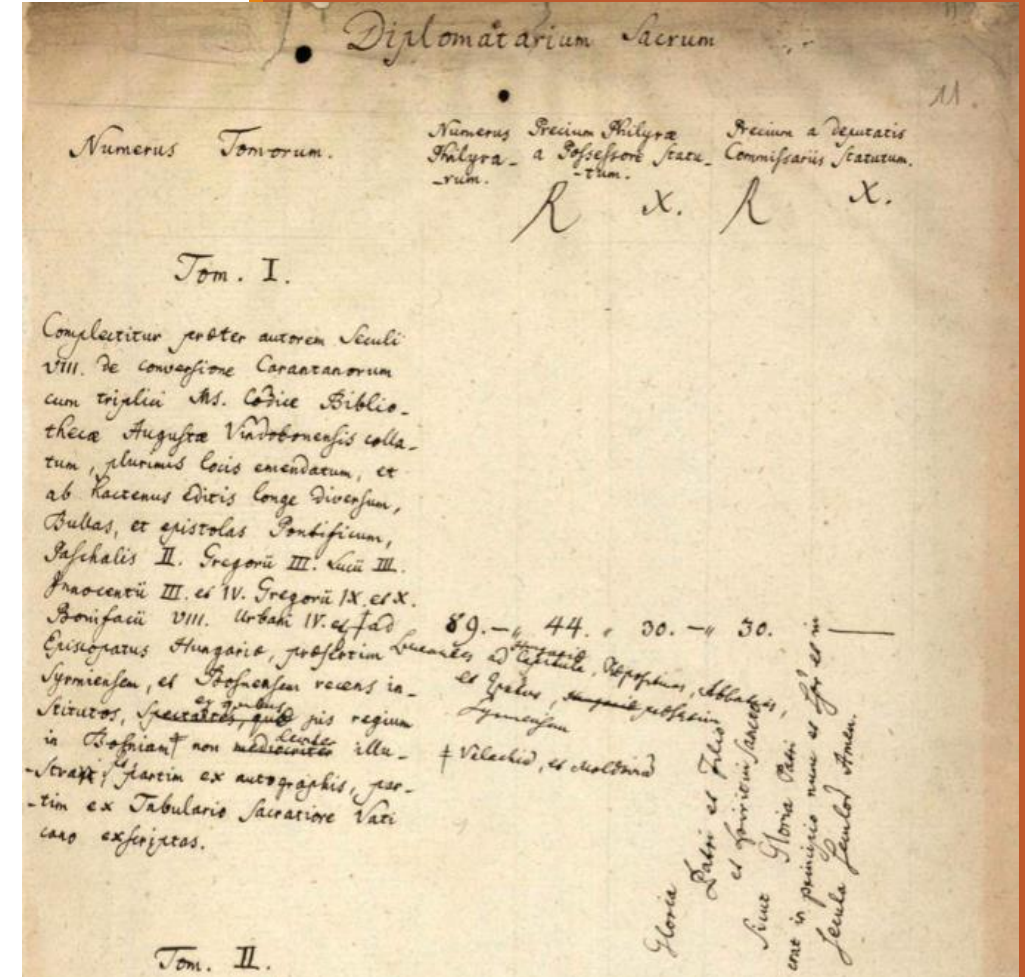 Diplomatarium Sacrum
11.
Numerus Tomorum.
Numerus
Philyra-
-rum.
Precium Philyræ
a Possessore statu-
-tum.
Precium a deputatis
Commissariis statutum.
R X. R X.
Tom. I.
Complectitur præter autorem Seculi
VIII. de conversione Carantanorum
cum triplici Ms. Codice Biblio-
thecæ Augustæ Vindobonensis colla-
tum, plurimis locis emendatum, et
ab hactenus editis longe diversum,
Bullas, et epistolas Pontificum,
Paschalis II. Gregorii III. Lucii III.
Innocentii III. et IV. Gregorii IX. et X.
Bonifacii VIII. Urbani IV. et ad 89.-" 44. " 30. -" 30.
Episcopatus Hungariæ, præsertim
Syrmiensem, et Bosnensem recens in-
stitutos, spectantes, quæ jus regium
ex quibus
in Bosniam † non mediocriter illu-
leviter
-strat, partim ex autographis, par-
-tim ex Tabulario Sacratiore Vati
cano exscriptas.
ad Capitula, Præpositos, Abbates,
Hungariæ
et præsertim
Syrmiensem
† Valachia, et Moldavia
Gloria
Patri et Filio
et Spiritui Sancto
Sicut Gloria Patri
erat in principio nunc et
secula seculor Amen.
Tom. II.